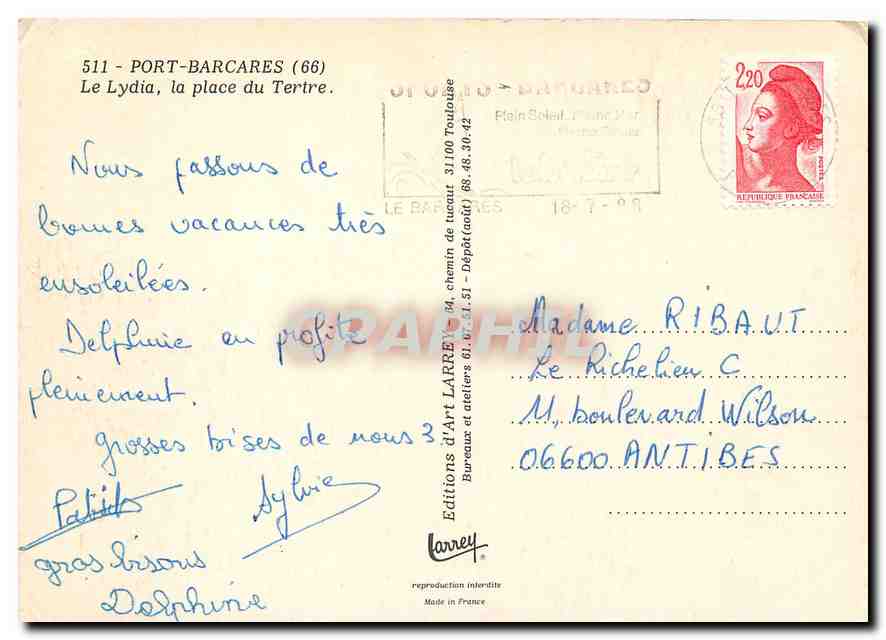 511 - PORT-BARCARES (66)
Le Lydia, la place du Tertre.
Nous passons de
bonnes vacances très
ensoleilées.
Delphine en profite
pleinement.
grosses bises de nous 3
Sylvie
gros bisous
Delphine
Editions d'Art LARREY 64, chemin de tucaut 31100 Toulouse
Bureaux et ateliers 61.67.51.51 - Dépôt (août) 68.48.30.42
Larrey
reproduction interdite
Made in France
Plein Soleil
LE BARCARES 18-7-88
2,20
POSTES
REPUBLIQUE FRANÇAISE
Madame RIBAUT
Le Richelieu C
11, boulevard Wilson
06600 ANTIBES
CPAPHIL